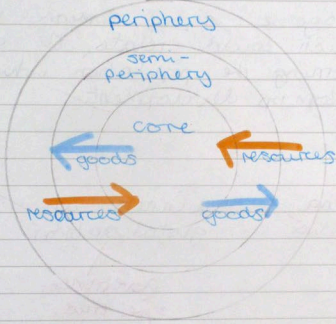 periphery
semi-
periphery
core
goods
resources
resources
goods